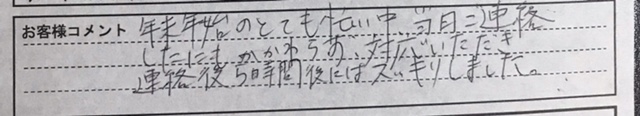 お客様コメント 年末年始のとても忙い中、当日ご連絡
したにもかかわらず、対応いただき
連絡後5時間後にはスッキリしました。